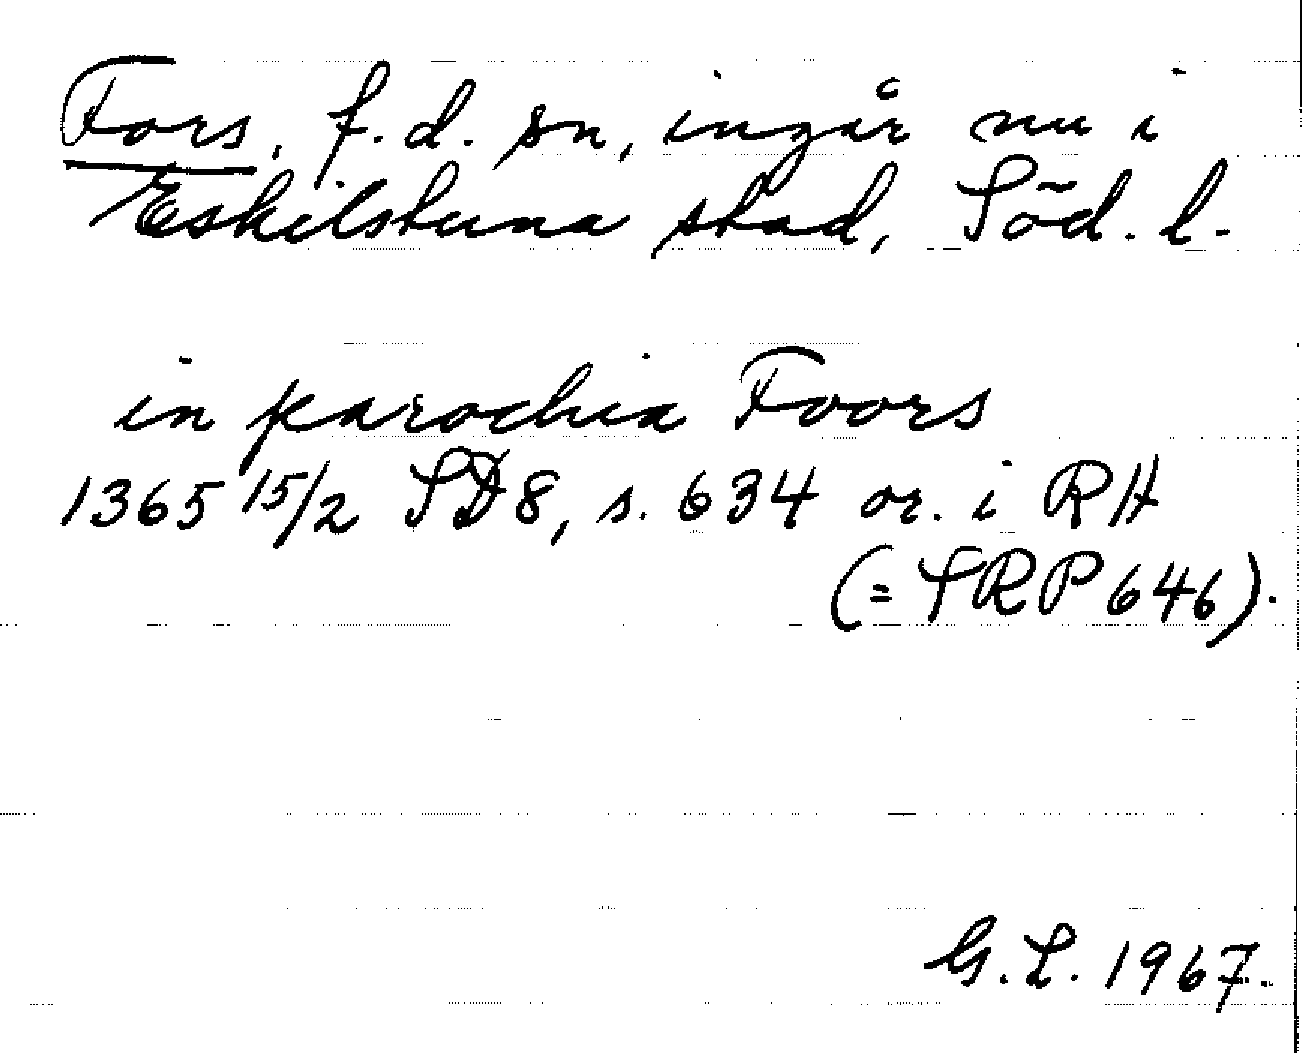 Fors, f.d. sn, ingår nu i
Eskilstuna stad, Söd. l.
in parochia Foors
1365 15/2 SD8, s. 634 or. i RA
(= SRP 646).
G.L. 1967.